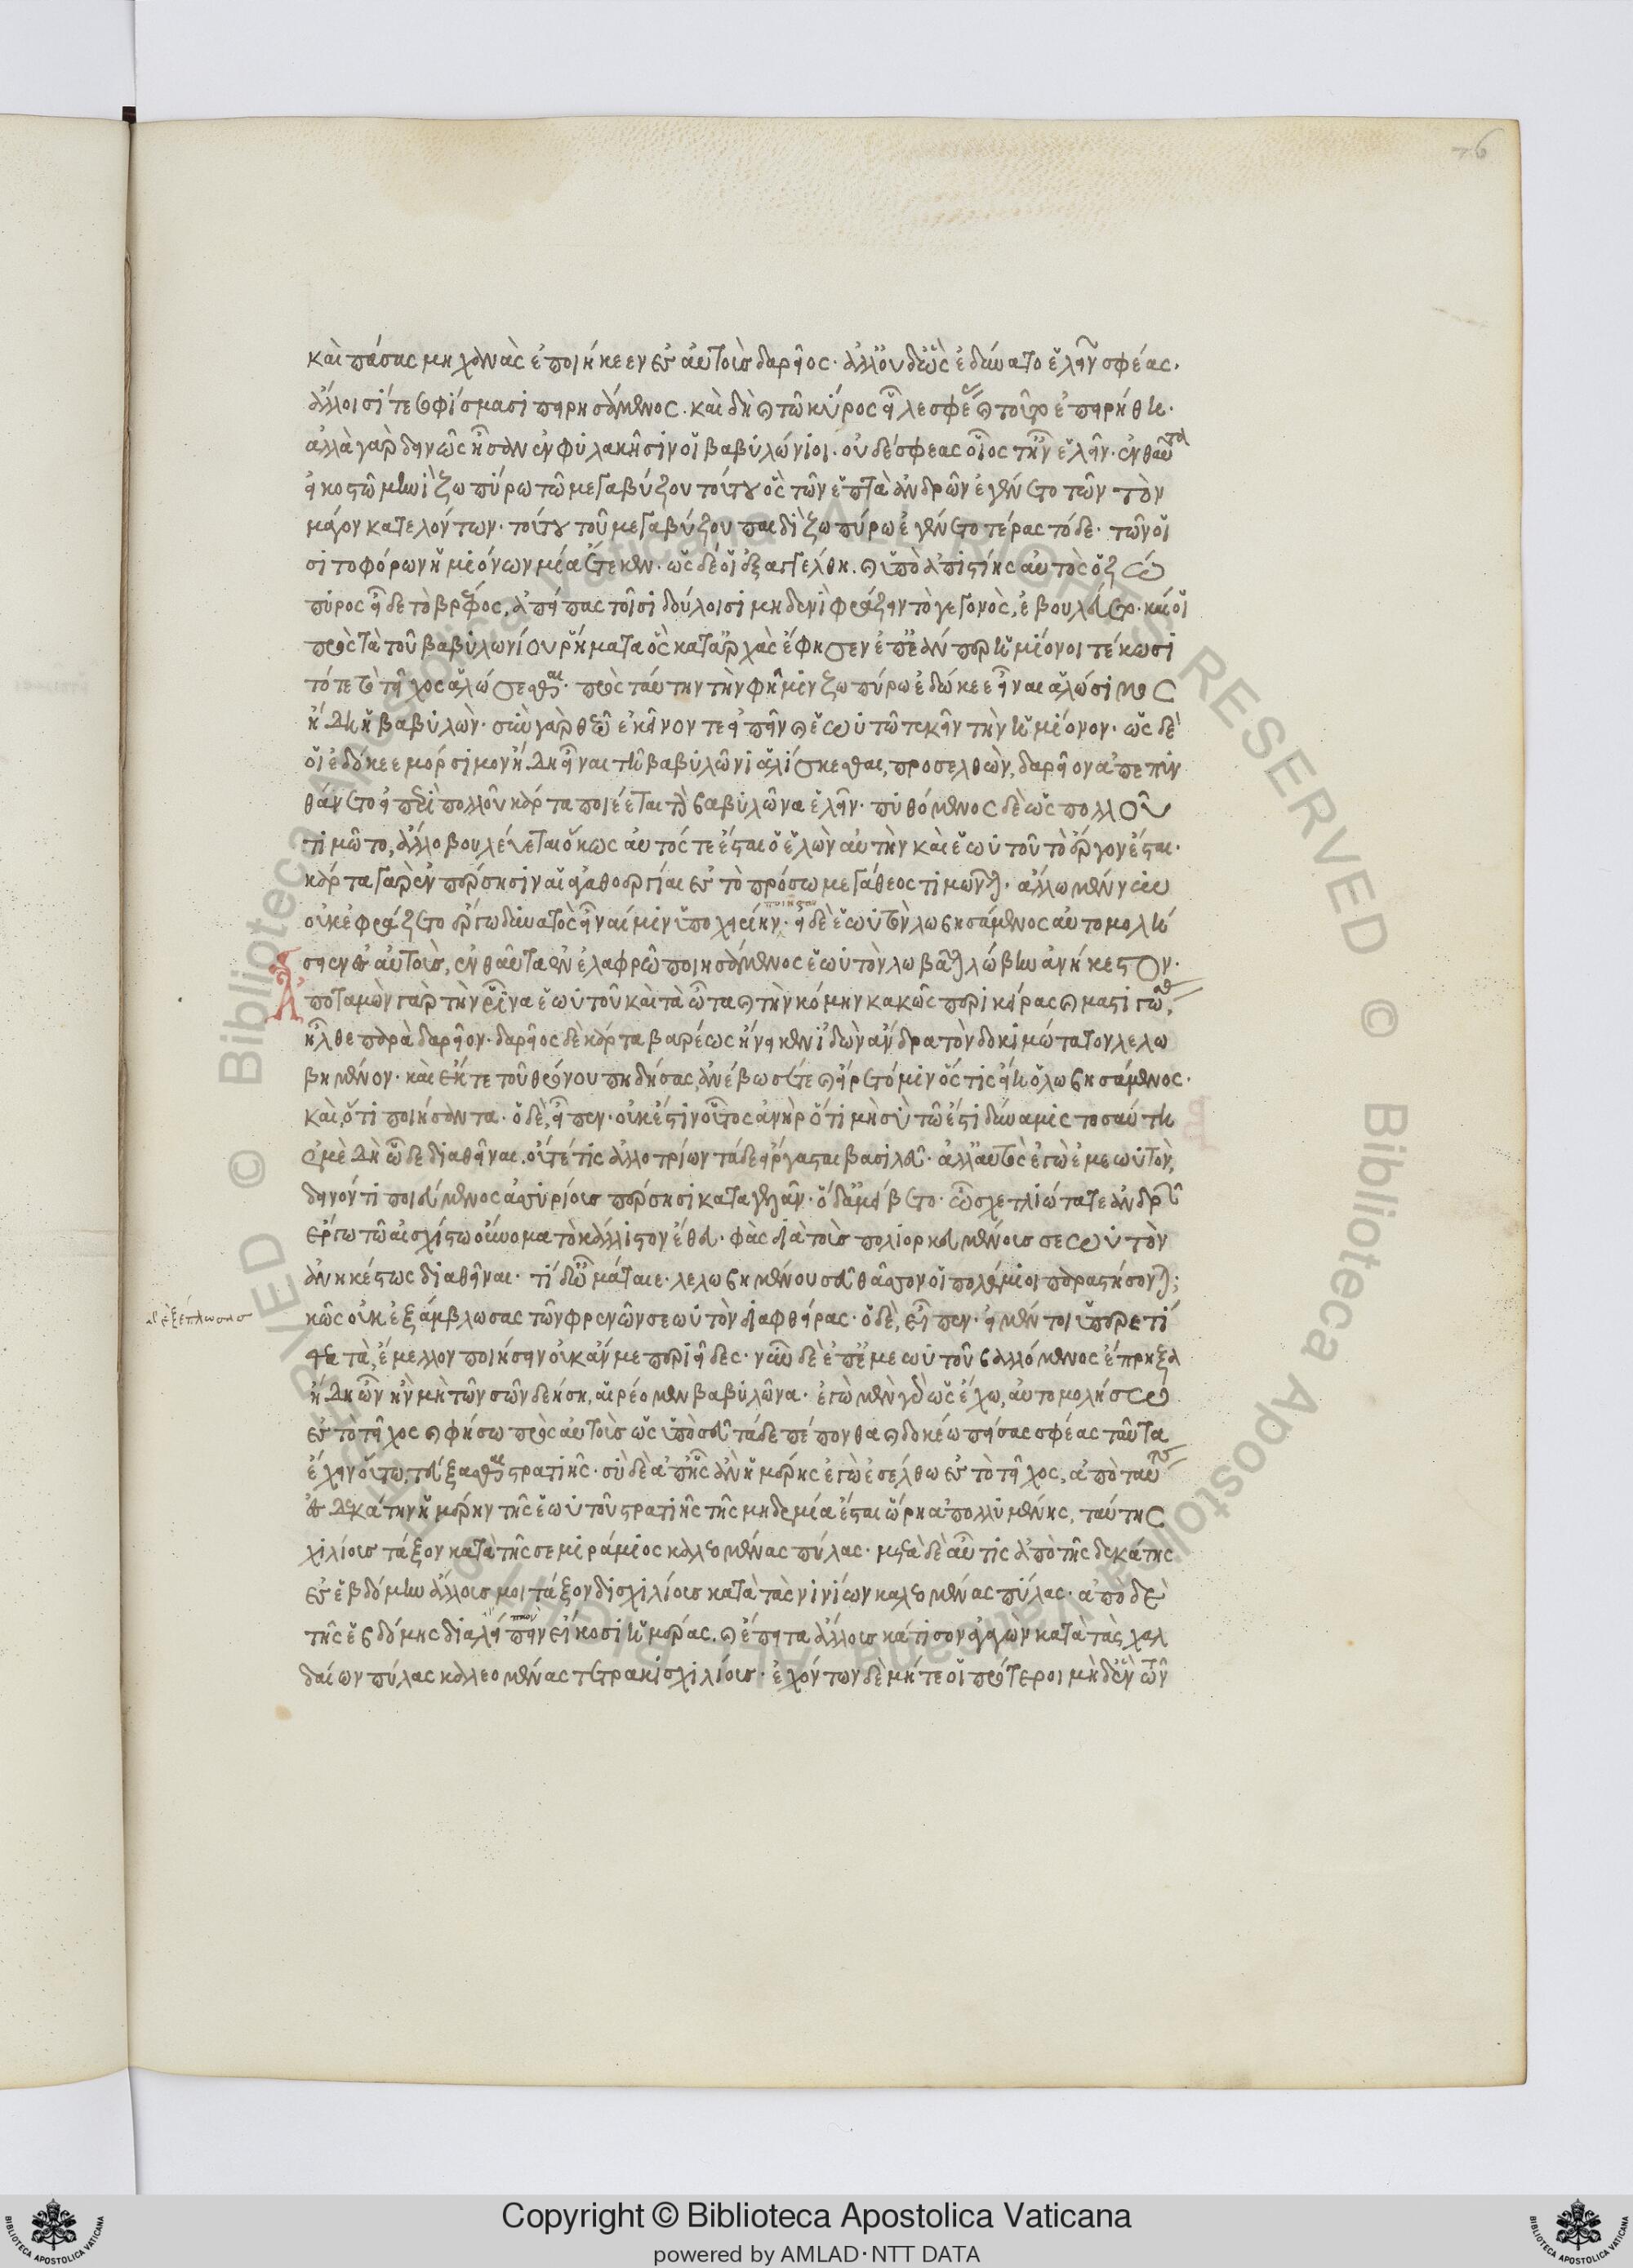 76
καὶ πάσας μηχανὰς ἐπεποιήκεεν ἐς αὐτοὺς δαρεῖος. ἀλλ' οὐδ' ὣς ἐδύνατο ἑλεῖν σφέας.
ἄλλοισί τε σοφίσμασι πειρησάμενος. καὶ δὴ καὶ τῶ κῦρος εἷλε σφέας καὶ τούτω ἐπειρήθη.
ἀλλὰ γὰρ δεινῶς ἦσαν ἐν φυλακῆσιν οἱ βαβυλώνιοι. οὐδέ σφεας οἷός τε ἦν ἑλεῖν. ἐνθαῦτα
εἰκοστῶ μηνὶ ζωπύρω τῶ μεγαβύζου τούτου ὃς τῶν ἑπτὰ ἀνδρῶν ἐγένετο τῶν τὸν
μάγον κατελόντων. τούτου τοῦ μεγαβύζου παιδὶ ζωπύρω ἐγένετο τέρας τόδε. τῶν οἱ
σιτοφόρων ἡμιόνων μία ἔτεκεν. ὡς δέ οἱ ἐξαγγέλθη. καὶ ὑπὸ ἀπιστίης αὐτὸς ὁ ζω
πυρος εἶδε τὸ βρέφος, ἀπείπας τοῖσι δούλοισι μηδενὶ φράζειν τὸ γεγονὸς, ἐβουλεύετο. καί οἱ
πρὸς τὰ τοῦ βαβυλωνίου ῥήματα ὃς κατ' ἀρχὰς ἔφησεν ἐπεάν περ ἡμίονοι τέκωσι
τότε τὸ τεῖχος ἁλώσεσθαι. πρὸς ταύτην τὴν φήμιν ζωπύρω ἐδώκεε εἶναι ἁλώσιμος
ἤδη ἡ βαβυλὼν. σὺν γὰρ θεῶ ἐκεῖνον τε εἰπεῖν καὶ ἑωυτῶ τεκεῖν τὴν ἡμίονον. ὡς δὲ
οἱ ἐδόκεε μόρσιμον ἤδη εἶναι τῆ βαβυλῶνι ἁλίσκεσθαι, προσελθὼν, δαρείου ἀπεπυν
θάνετο εἰ περὶ πολλοῦ κάρτα ποιέεται τὴν βαβυλῶνα ἑλεῖν. πυθόμενος δὲ ὡς πολλοῦ
τιμῶτο, ἄλλο βουλεύεται ὅκως αὐτός τε ἔσται ὁ ἑλὼν αὐτὴν καὶ ἑωυτοῦ τὸ ἔργον ἔσται.
κάρτα γὰρ ἐν πέρσησιν αἱ ἀγαθοεργίαι ἐς τὸ πρόσω μεγάθεος τιμῶνται. ἄλλω μέν νυν
ποιῆσαι
οὐκ ἐφράζετο ἔργω δυνατὸς εἶναί μιν ὑποχειρίην. εἰ δὲ ἑωυτὸν λωβησάμενος αὐτομολή
σειεν ἐς αὐτοὺς, ἐνθαῦτα ἐν ἐλαφρῶ ποιησάμενος ἑωυτὸν λωβᾶται λώβην ἀνήκεστον.
Ἀποταμὼν γὰρ τὴν ῥῖνα ἑωυτοῦ καὶ τὰ ὦτα καὶ τὴν κόμην κακῶς περικείρας καὶ μαστιγώσας,
ἦλθε παρὰ δαρεῖον. δαρεῖος δὲ κάρτα βαρέως ἤνεικεν ἰδὼν ἄνδρα τὸν δοκιμώτατον λελω
βημένον. καὶ ἔκ τε τοῦ θρόνου πηδήσας, ἀνέβωσέ τε καὶ εἴρετό μιν ὅς τις εἴη ὁ λωβησάμενος.
καὶ, ὅτι ποιήσαντα. ὁ δὲ, εἶπεν. οὐκ ἔστιν οὗτος ἀνὴρ ὅτι μὴ σὺ τῶ ἐστὶ δύναμις τοσαύτη
ἐμὲ δὴ ὧδε διαθεῖναι. οὔτέ τις ἀλλοτρίων τάδε εἴργασται βασιλεῦ. ἀλλ' αὐτὸς ἐγὼ ἐμεωυτὸν,
δεινόν τι ποιεύμενος ἀσσυρίοις πέρσησι καταγελᾶν. ὁ δ' ἀμείβετο. ὦ σχετλιώτατε ἀνδρῶν
ἔργω τῶ αἰσχίστω οὔνομα τὸ κάλλιστον ἔθευ. φὰς διὰ τοὺς πολιορκευμένους σεωυτὸν
ἀνηκέστως διαθεῖναι. τί δ' ὦ μάταιε. λελωβημένου σεῦ θᾶσσον οἱ πολέμιοι παραστήσονται;
ἐξέπλωσας
κῶς οὐκ ἐξάμβλωσας τῶν φρενῶν σεωυτὸν διαφθείρας. ὁ δὲ, εἶπεν. εἰ μέν τοι ὑπερετί
θεα τὰ, ἔμελλον ποιήσειν οὐκ ἄν με περιεῖδες. νῦν δὲ ἐπ' ἐμεωυτοῦ βαλλόμενος ἔπρηξα
ἤδη ὦν ἢν μὴ τῶν σῶν δεήση, αἱρέομεν βαβυλῶνα. ἐγὼ μὲν γὰρ ὡς ἔχω, αὐτομολήσω
ἐς τὸ τεῖχος καὶ φήσω πρὸς αὐτοὺς ὡς ὑπὸ σεῦ τάδε πέπονθα καὶ δοκέω πείσας σφέας ταῦτα
ἔχειν οὕτω, τεύξασθαι στρατιῆς. σὺ δὲ ἀπ' ἧς ἂν ἡμέρης ἐγὼ ἐσέλθω ἐς τὸ τεῖχος, ἀπὸ ταύτης
ἐς δεκάτην ἡμέρην τῆς ἑωυτοῦ στρατιῆς τῆς μηδεμία ἔσται ὥρη ἀπολλυμένης, ταύτης
χιλίους τάξον κατὰ τῆς σεμιράμιος καλεομένας πύλας. μετὰ δὲ αὖτις ἀπὸ τῆς δεκάτης
ἐς ἑβδόμην ἄλλους μοι τάξον δισχιλίους κατὰ τὰς νινίων καλεομένας πύλας. ἀπὸ δὲ
τῆς ἑβδόμης διαλείπειν εἴκοσι ἡμέρας. καὶ ἔπειτα ἄλλους κάτισον ἀγαγὼν κατὰ τὰς χαλ
δαίων πύλας καλεομένας τετρακισχιλίους. ἐχόντων δὲ μήτε οἱ πρότεροι μηδὲν τῶν
Copyright © Biblioteca Apostolica Vaticana
powered by AMLAD·NTT DATA